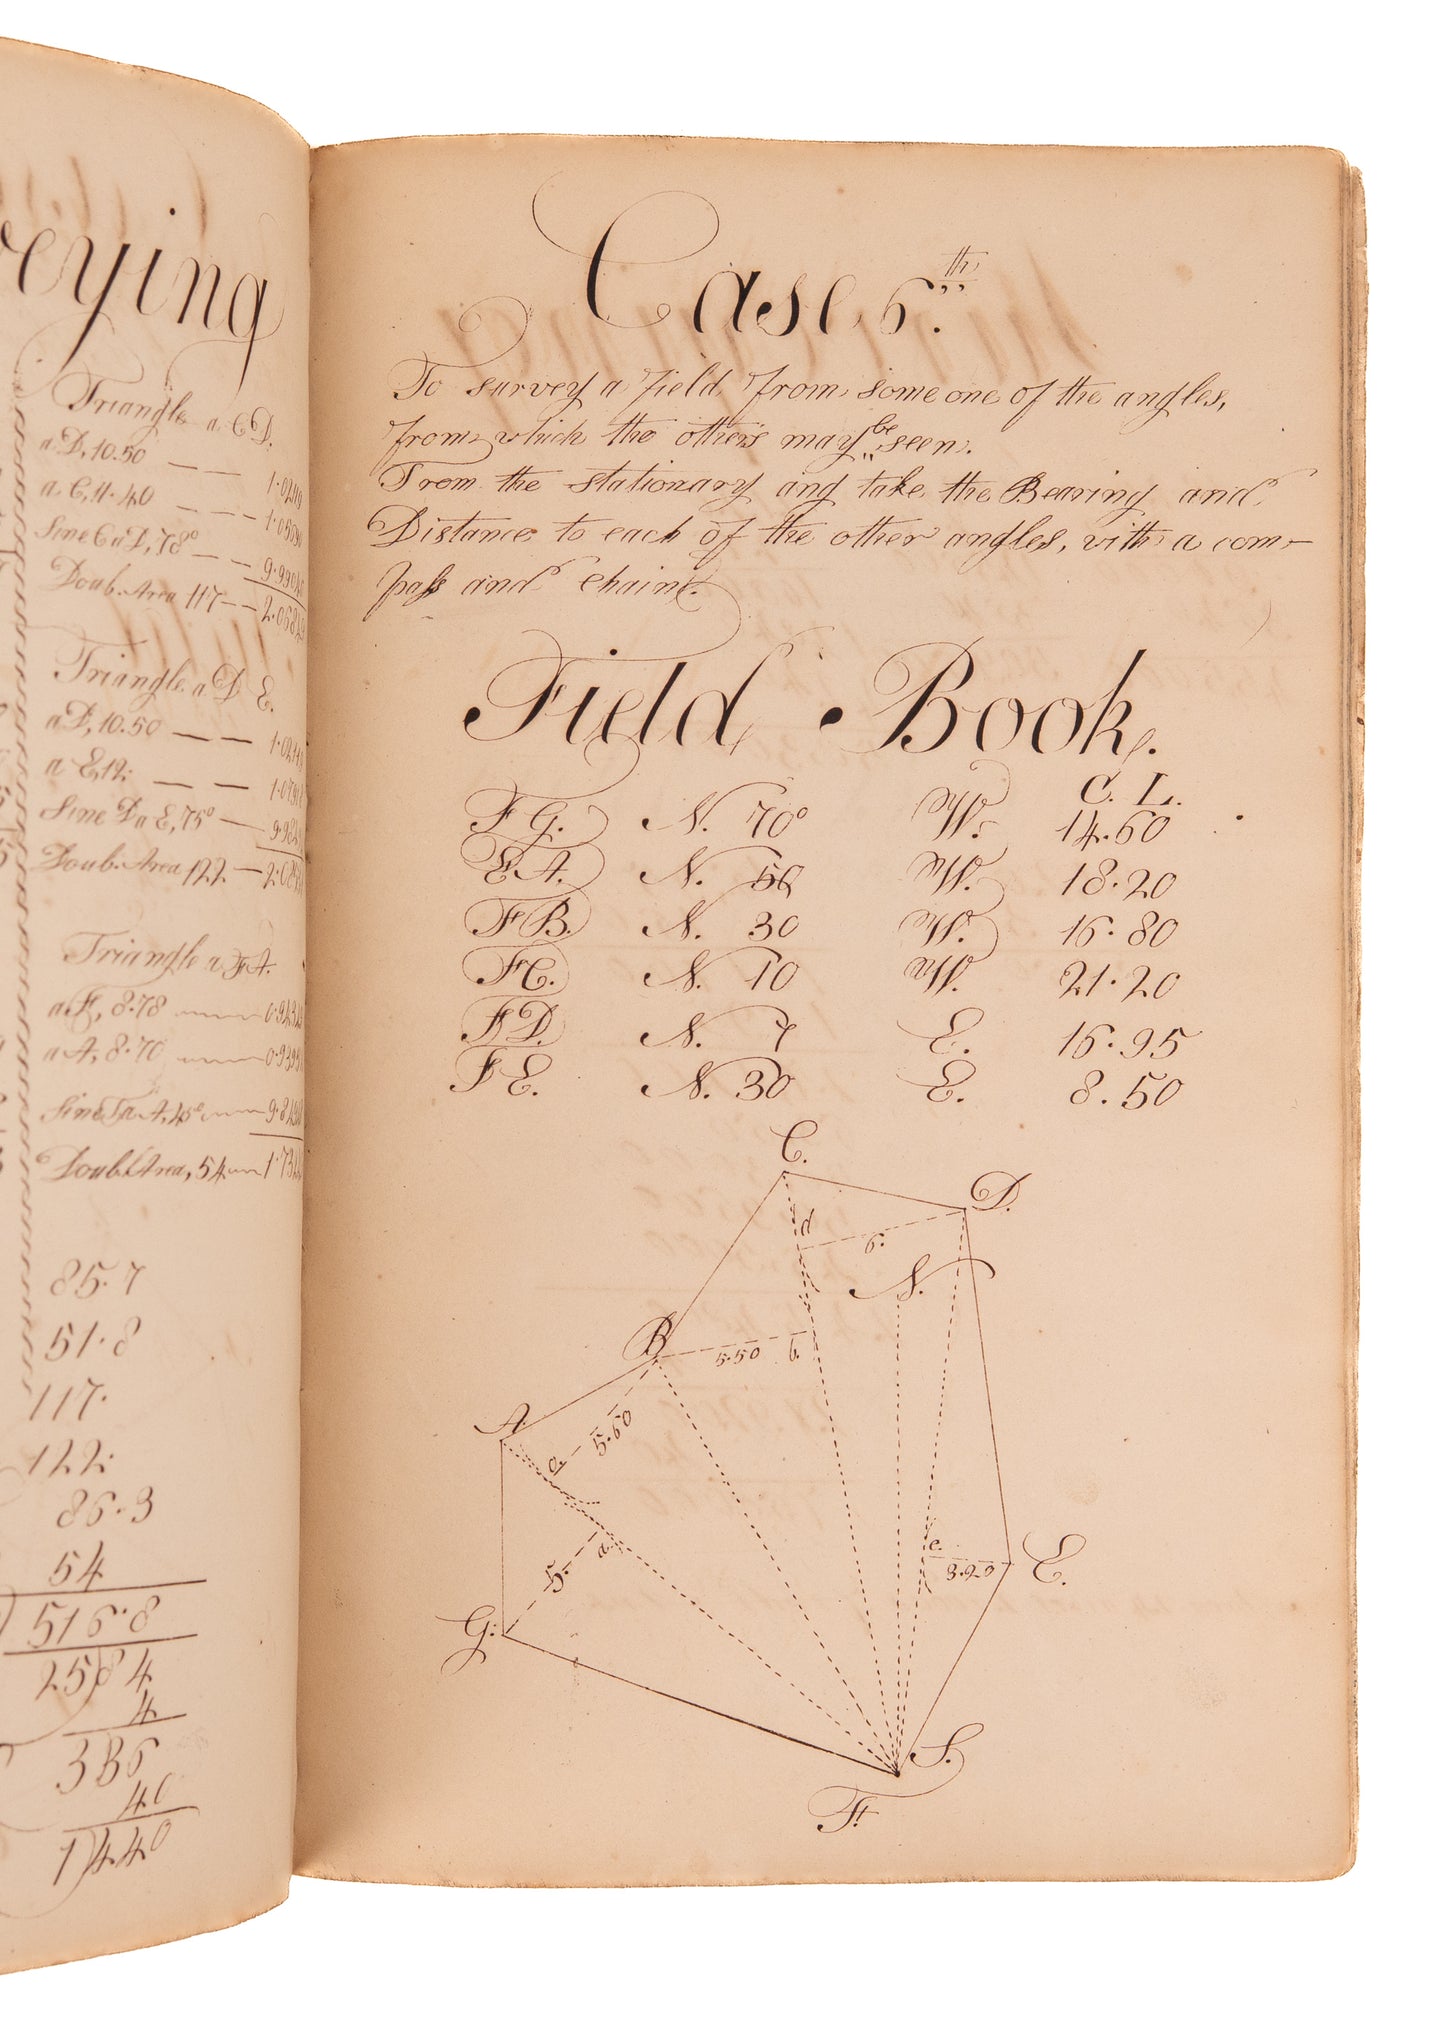 eying
Triangle a C D.
a D, 10.50 — —
a C, 11.40 — — —
Sine C a D, 78° — —
Doub. Area 117 — —
Triangle a D E.
a D, 10.50 — —
a E, 12: — —
Sine D a E, 75° —
Doub. Area 122 —
Triangle a F A.
a F, 8.78
a A, 8.70
Sine F a A, 45°
Doub. Area, 54
85.7
51.8
117.
122:
86.3
54
516.8
25)8 4
4
336
40
1)440
Case 6.th
To survey a field from some one of the angles,
from which the others may be seen.
From the stationary ang take the Bearing and
Distance to each of the other angles, with a com-
pass and chain.
Field Book.
C. L.
F G. N. 70° W. 14.60
F A. N. 50 W. 18.20
F B. N. 30 W. 16.80
F C. N. 10 W. 21.20
F D. N. 7 E. 16.95
F E. N. 30 E. 8.50
C.
D.
d
6.
N.
B
5.50 b.
A.
5.60
c.
5.
a.
e.
3.20 E.
G:
S.
F.